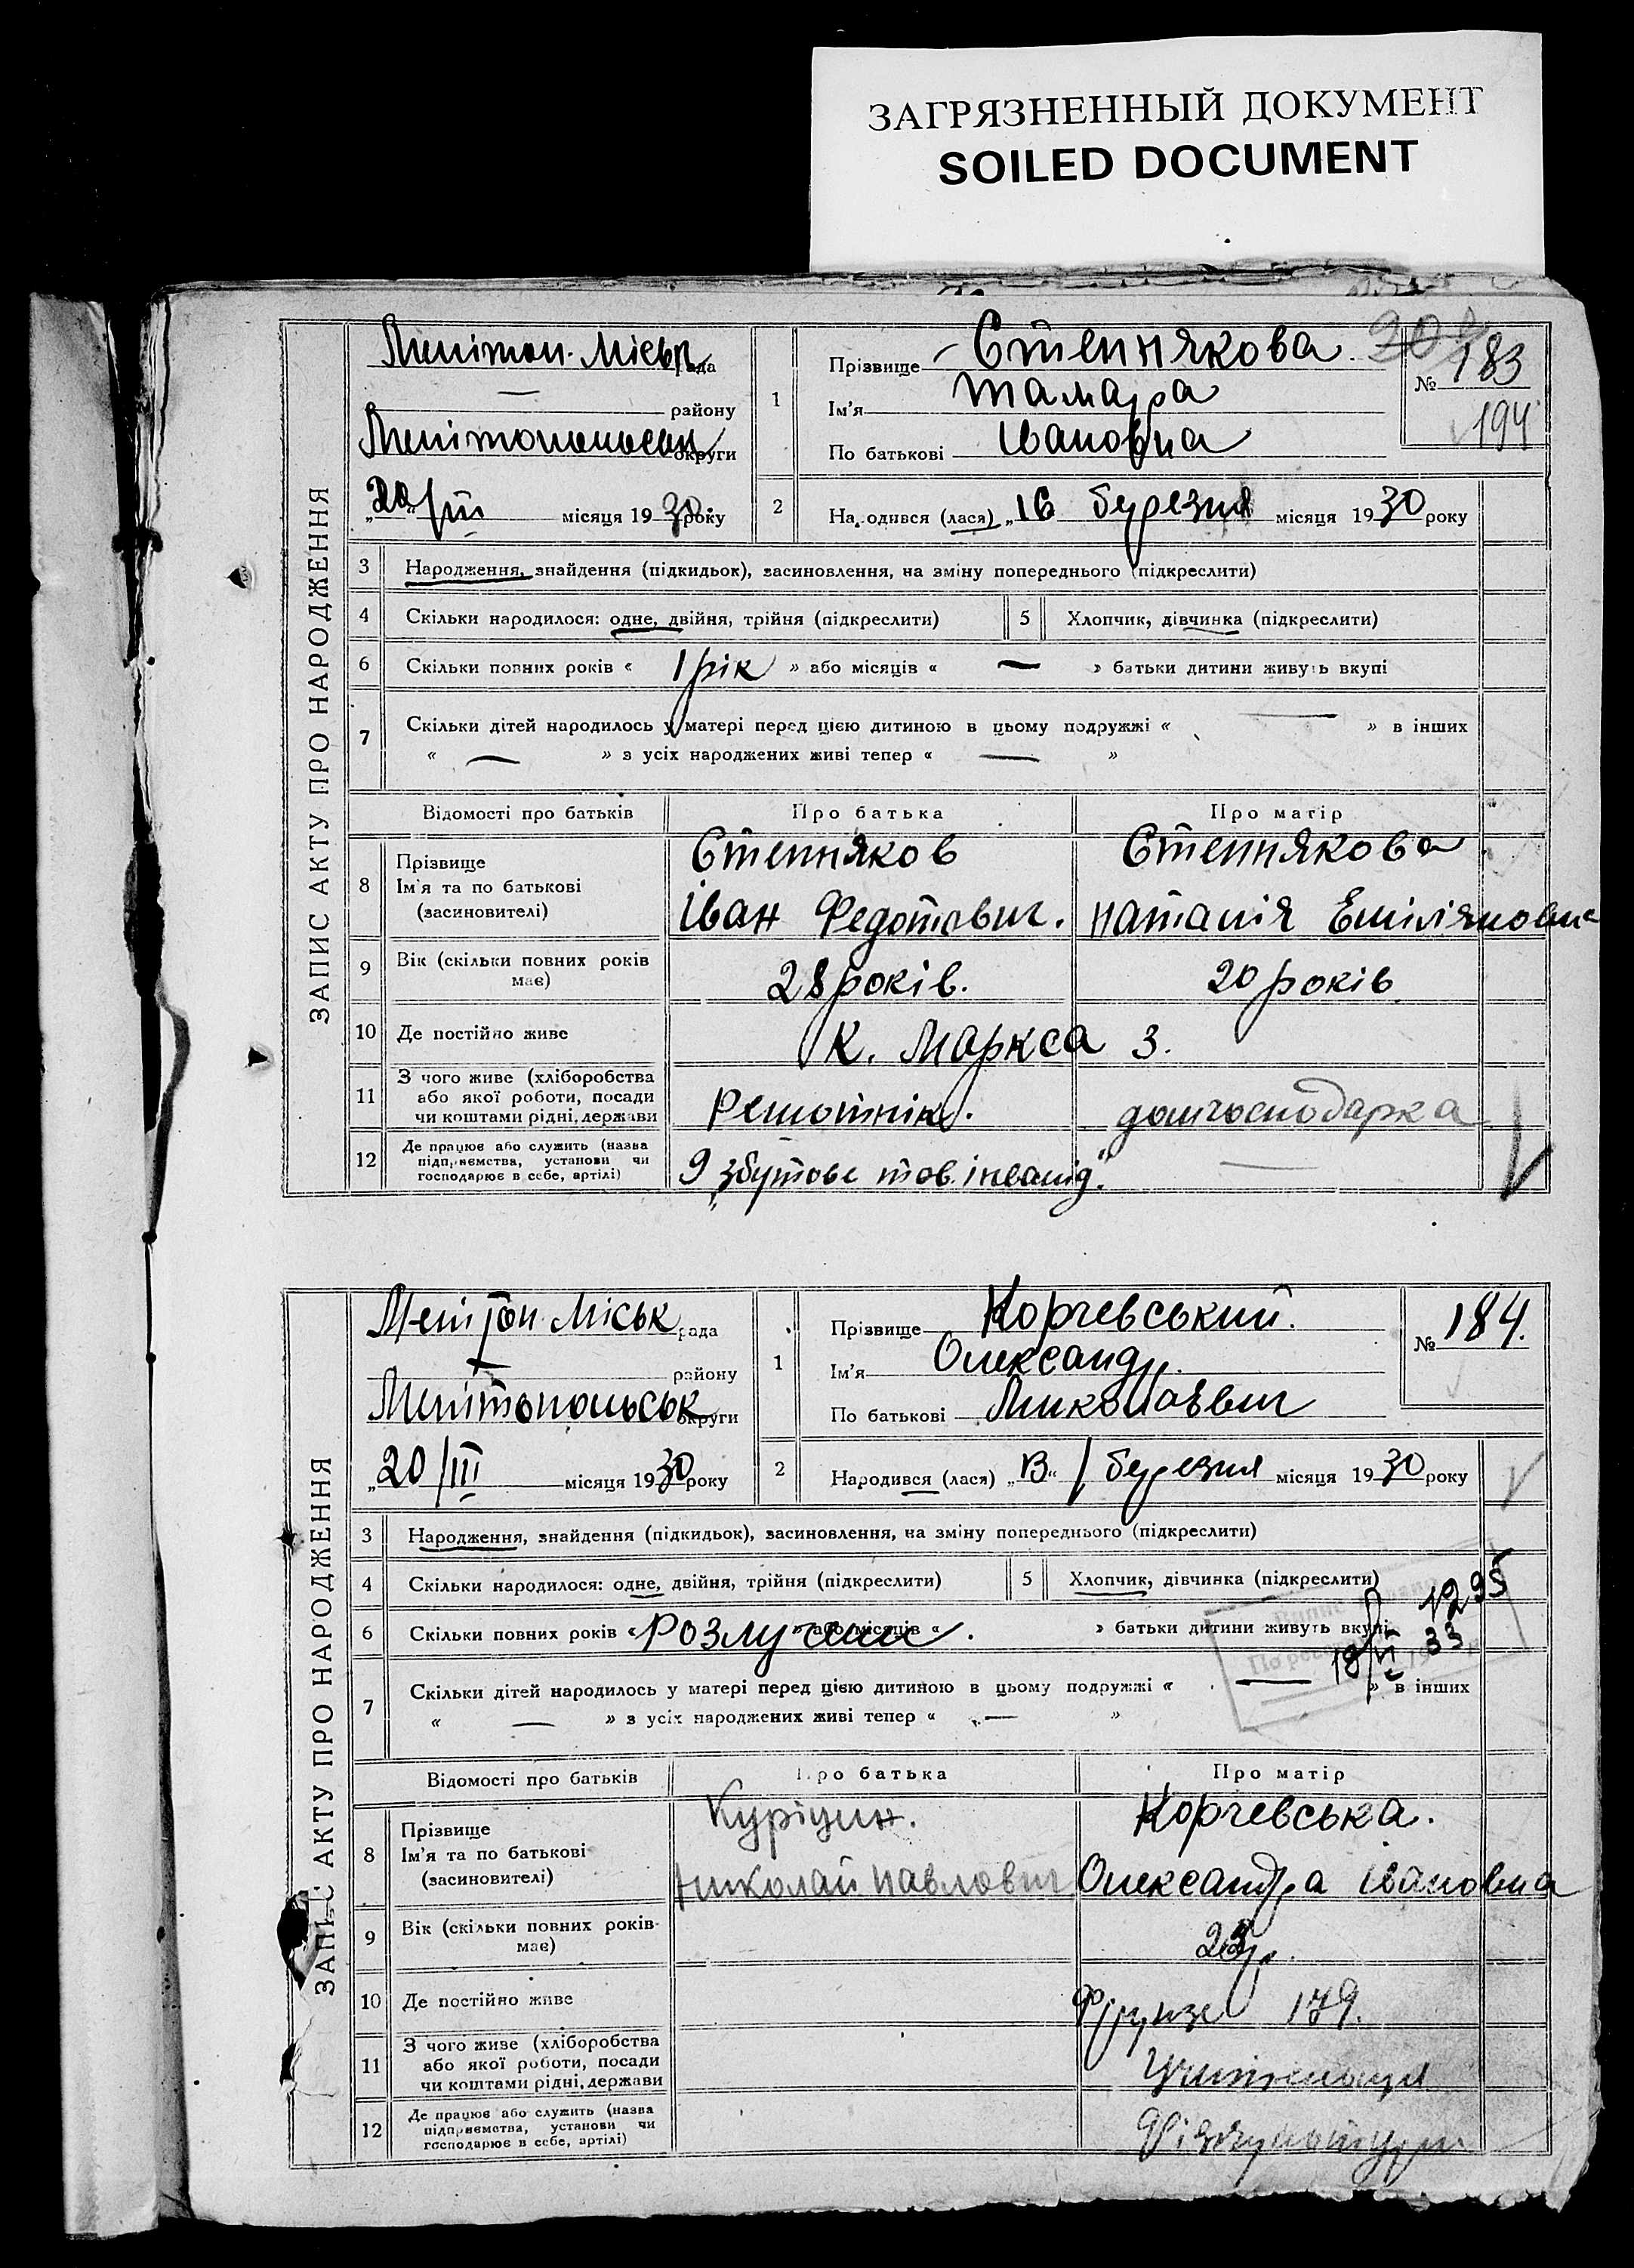 ЗАГРЯЗНЕННЫЙ ДОКУМЕНТ
SOILED DOCUMENT
ЗАПИС АКТУ ПРО НАРОДЖЕННЯ
Мелітоп. Міськ рада
— району
Мелітопольськ округи
„20“/III місяця 1930 року
1 Прізвище Степнякова
Ім'я Тамара
По батькові Івановна
№ 183
194
2 Народився (лася) „16 березня місяця 1930 року
3 Народження, знайдення (підкидьок), засиновлення, на зміну попереднього (підкреслити)
4 Скільки народилося: одне, двійня, трійня (підкреслити) 5 Хлопчик, дівчинка (підкреслити)
6 Скільки повних років « 1 рік » або місяців « — » батьки дитини живуть вкупі
7 Скільки дітей народилось у матері перед цією дитиною в цьому подружжі « — » в інших
« — » з усіх народжених живі тепер « — »
Відомості про батьків Про батька Про матір
8 Прізвище Ім'я та по батькові (засиновителі)
Степняков Степнякова
Іван Федотович. Наталія Еміліяновна
9 Вік (скільки повних років має) 28 років. 20 років
10 Де постійно живе К. Маркса 3.
11 З чого живе (хліборобства або якої роботи, посади чи коштами рідні, держави
домгосподарка
12 Де працює або служить (назва підприємства, установи чи господарює в себе, артілі)
збутове тов. інвалід. —
ЗАПИС АКТУ ПРО НАРОДЖЕННЯ
Меліtоп. Міськ рада
району
Мелітопольськ округи
„20/III місяця 1930 року
1 Прізвище Корчевський.
Ім'я Олександр.
По батькові Миколаєвич
№ 184.
2 Народився (лася) „13“ березня місяця 1930 року
3 Народження, знайдення (підкидьок), засиновлення, на зміну попереднього (підкреслити)
4 Скільки народилося: одне, двійня, трійня (підкреслити) 5 Хлопчик, дівчинка (підкреслити)
1295
6 Скільки повних років « Розлучили. » або місяців « » батьки дитини живуть вкупі
18/VI 33
7 Скільки дітей народилось у матері перед цією дитиною в цьому подружжі « — » в інших
« — » з усіх народжених живі тепер « — »
Відомості про батьків Про батька Про матір
8 Прізвище Ім'я та по батькові (засиновителі)
Куріцин. Корчевська.
Николай Павлович Олександра Івановна
9 Вік (скільки повних років має) 23 р.
10 Де постійно живе Фрунзе 179.
11 З чого живе (хліборобства або якої роботи, посади чи коштами рідні, держави
Учителька
12 Де працює або служить (назва підприємства, установи чи господарює в себе, артілі)
Фізкультури